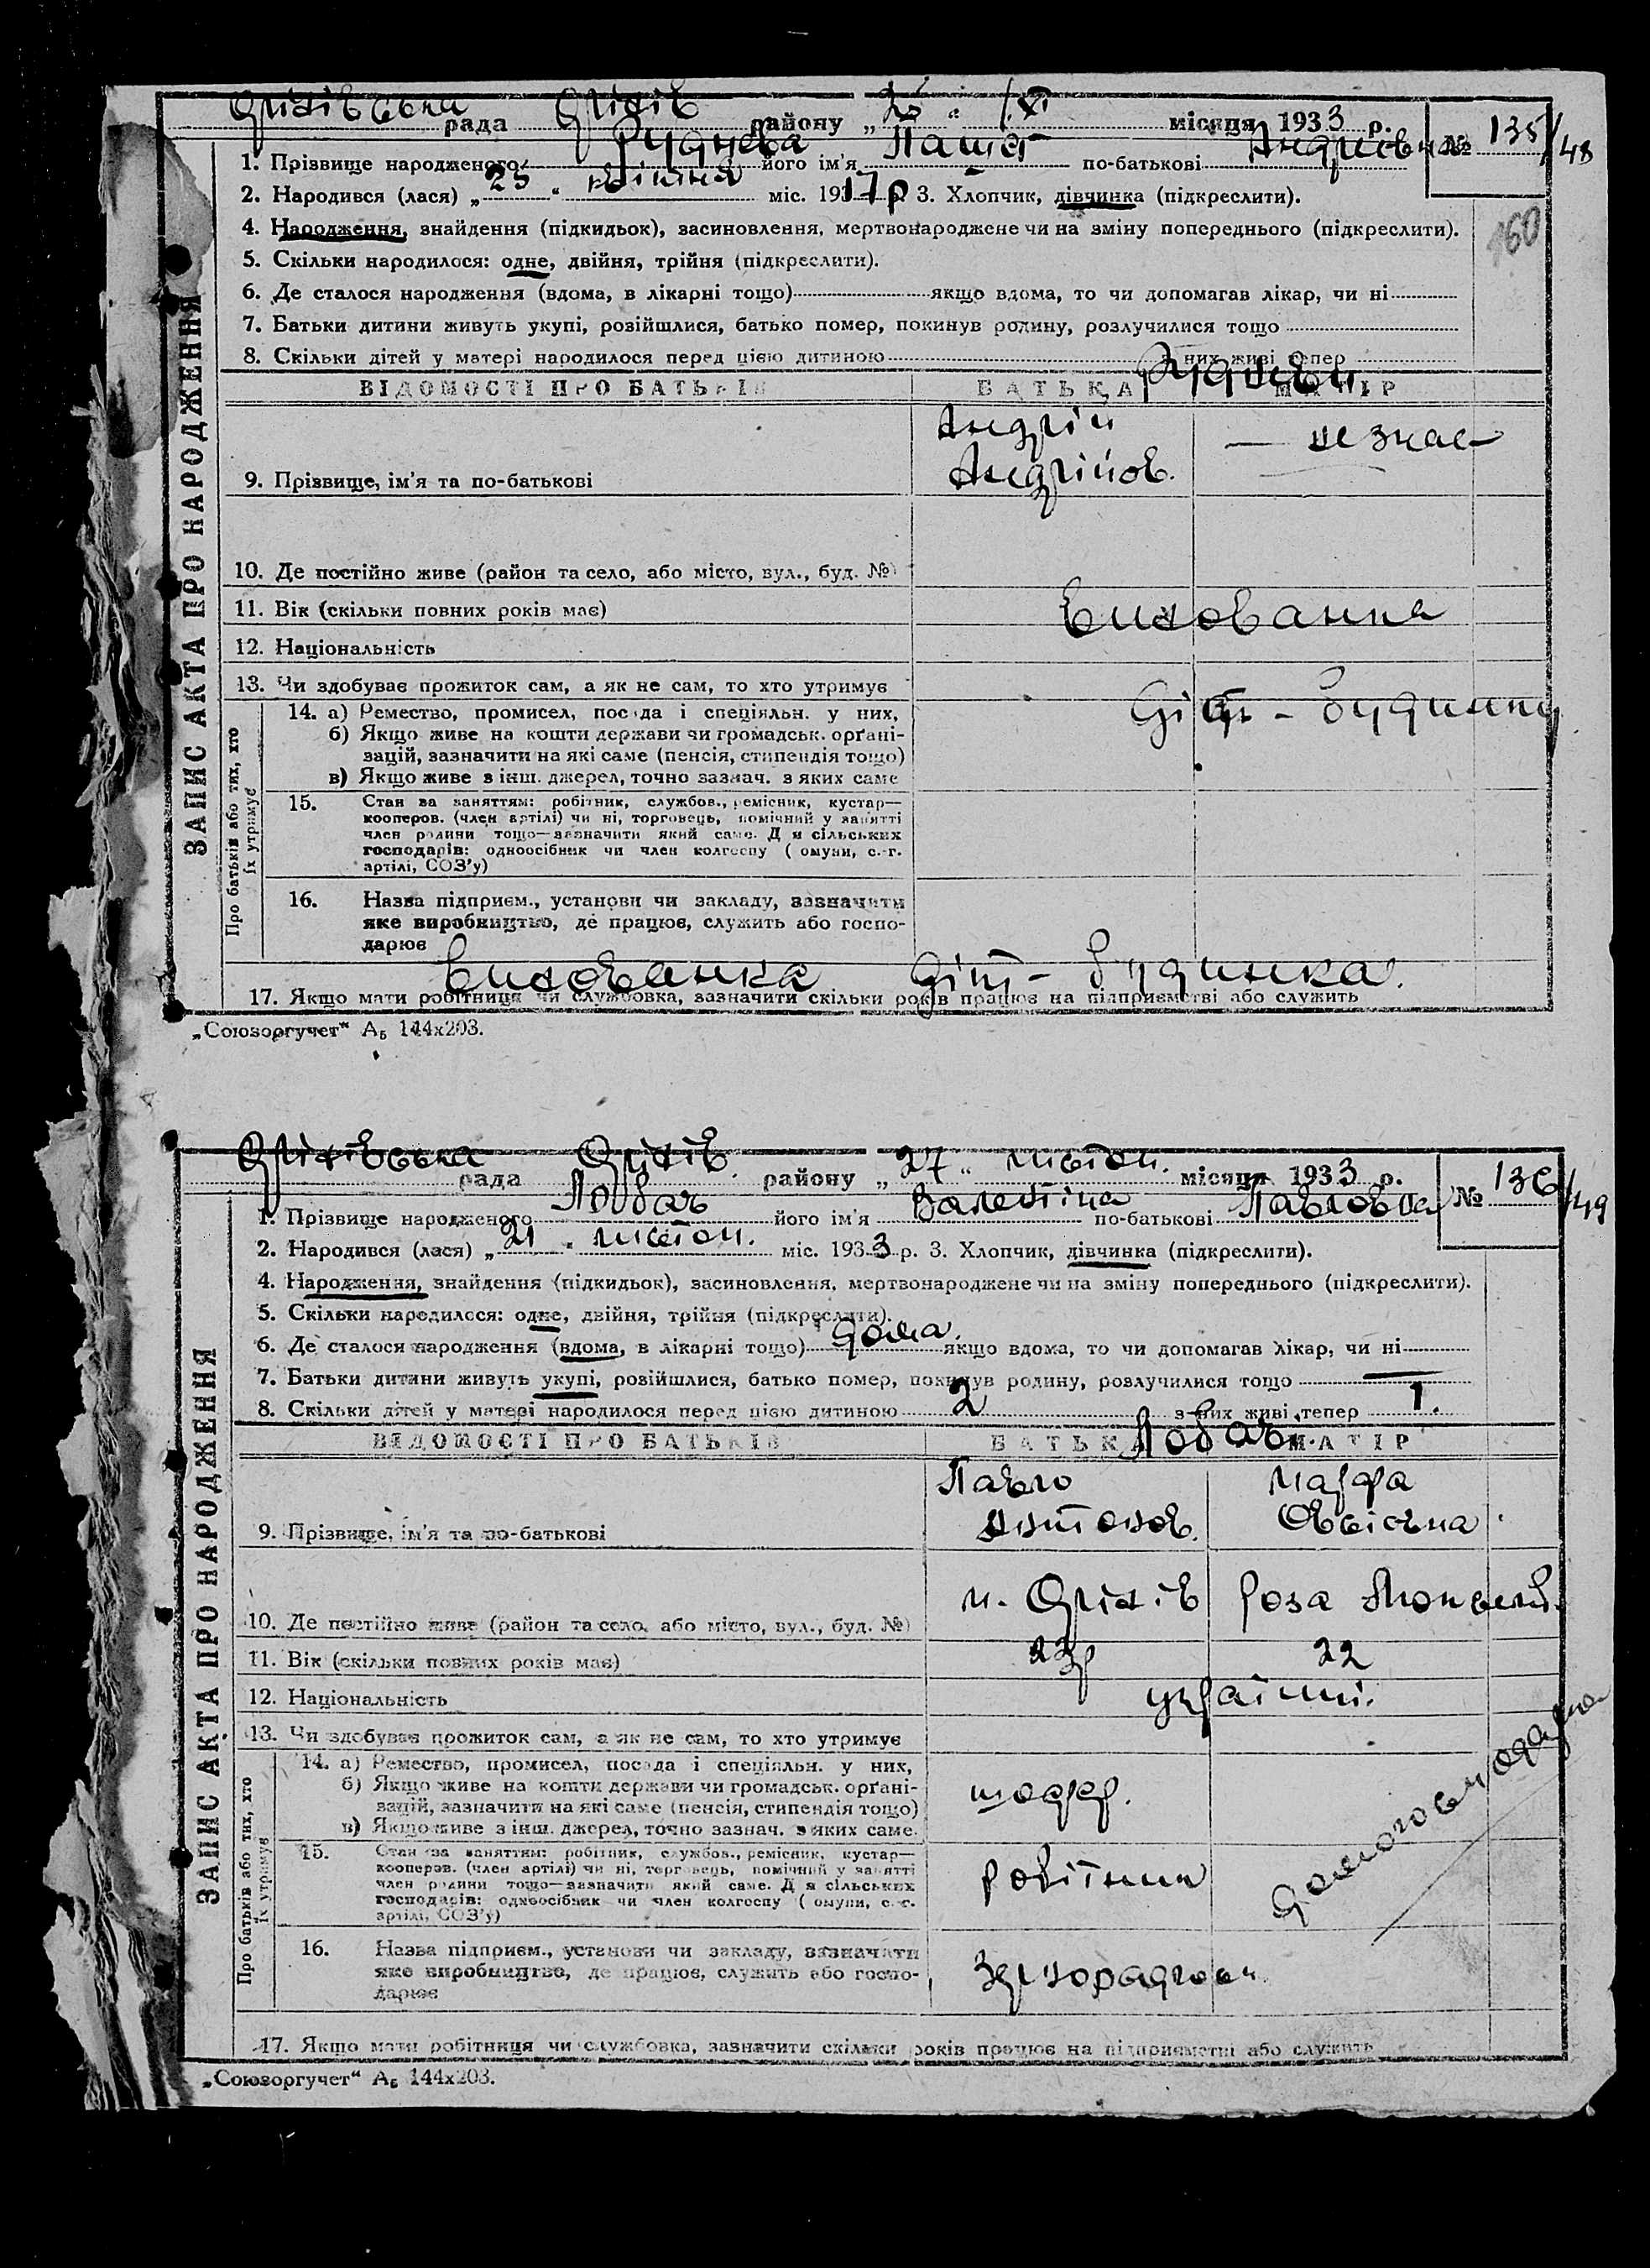 Оріхівська рада Оріхів району „ “ XI місяця 1933 р. № 135/48
1. Прізвище народженого Руднєва його ім'я Паша по-батькові Андріівна
2. Народився (лася) „25“ квітня міс. 1917р 3. Хлопчик, дівчинка (підкреслити).
160
4. Народження, знайдення (підкидьок), засиновлення, мертвонароджене чи на зміну попереднього (підкреслити).
5. Скільки народилося: одне, двійня, трійня (підкреслити).
6. Де сталося народження (вдома, в лікарні тощо) якщо вдома, то чи допомагав лікар, чи ні
7. Батьки дитини живуть укупі, розійшлися, батько помер, покинув родину, розлучилися тощо
8. Скільки дітей у матері народилося перед цією дитиною з них живі тепер
ЗАПИС АКТА ПРО НАРОДЖЕННЯ
ВІДОМОСТІ ПРО БАТЬКІВ БАТЬКА МАТІР
Руднєви
Андрій — не знає —
9. Прізвище, ім'я та по-батькові Андрійов.
10. Де постійно живе (район та село, або місто, вул., буд. №)
11. Вік (скільки повних років має) Вихованка
12. Національність
13. Чи здобуває прожиток сам, а як не сам, то хто утримує
Про батьків або тих, хто їх утримує
14. а) Ремество, промисел, посада і спеціяльн. у них, Діт-будинку
б) Якщо живе на кошти держави чи громадськ. орґані-
зацій, зазначити на які саме (пенсія, стипендія тощо)
в) Якщо живе з інш. джерел, точно зазнач. з яких саме
15. Стан за заняттям: робітник, службов., ремісник, кустар—
кооперов. (член артілі) чи ні, торговець, помічний у занятті
член родини тощо—зазначити який саме. Д я сільських
господарів: одноосібник чи член колгоспу ( омуни, с.-г.
артілі, СОЗ'у)
16. Назва підприєм., установи чи закладу, зазначити
яке виробництво, де працює, служить або госпо-
дарює
Вихованка Діт-будинка.
17. Якщо мати робітниця чи службовка, зазначити скільки років працює на підприємстві або служить
„Союзоргучет“ А₅ 144х203.
Оріхівська рада Оріхів району „27“ листоп. місяця 1933 р. № 136/49
1. Прізвище народженого Лобач його ім'я Валентіна по-батькові Павловна
2. Народився (лася) „21“ листоп. міс. 1933 р. 3. Хлопчик, дівчинка (підкреслити).
4. Народження, знайдення (підкидьок), засиновлення, мертвонароджене чи на зміну попереднього (підкреслити).
5. Скільки народилося: одне, двійня, трійня (підкреслити).
6. Де сталося народження (вдома, в лікарні тощо) дома. якщо вдома, то чи допомагав лікар, чи ні
7. Батьки дитини живуть укупі, розійшлися, батько помер, покинув родину, розлучилися тощо —
8. Скільки дітей у матері народилося перед цією дитиною 2 з них живі тепер 1.
ЗАПИС АКТА ПРО НАРОДЖЕННЯ
ВІДОМОСТІ ПРО БАТЬКІВ БАТЬКА МАТІР
Лобач.
Павло Марфа
9. Прізвище, ім'я та по-батькові Антонов. Овсієвна
10. Де постійно живе (район та село, або місто, вул., буд. №) м. Оріхів Роза
11. Вік (скільки повних років має) 23р 22
12. Національність українці.
13. Чи здобуває прожиток сам, а як не сам, то хто утримує
Про батьків або тих, хто їх утримує
14. а) Ремество, промисел, посада і спеціяльн. у них, шофер. домогосподарка
б) Якщо живе на кошти держави чи громадськ. орґані-
зацій, зазначити на які саме (пенсія, стипендія тощо)
в) Якщо живе з інш. джерел, точно зазнач. з яких саме.
15. Стан за заняттям: робітник, службов., ремісник, кустар— робітник
кооперов. (член артілі) чи ні, торговець, помічний у занятті
член родини тощо—зазначити який саме. Д я сільських
господарів: одноосібник чи член колгоспу ( омуни, с.-г.
артілі, СОЗ'у)
16. Назва підприєм., установи чи закладу, зазначити Зернорадгосп.
яке виробництво, де працює, служить або госпо-
дарює
17. Якщо мати робітниця чи службовка, зазначити скільки років працює на підприємстві або служить
„Союзоргучет“ А₅ 144х203.